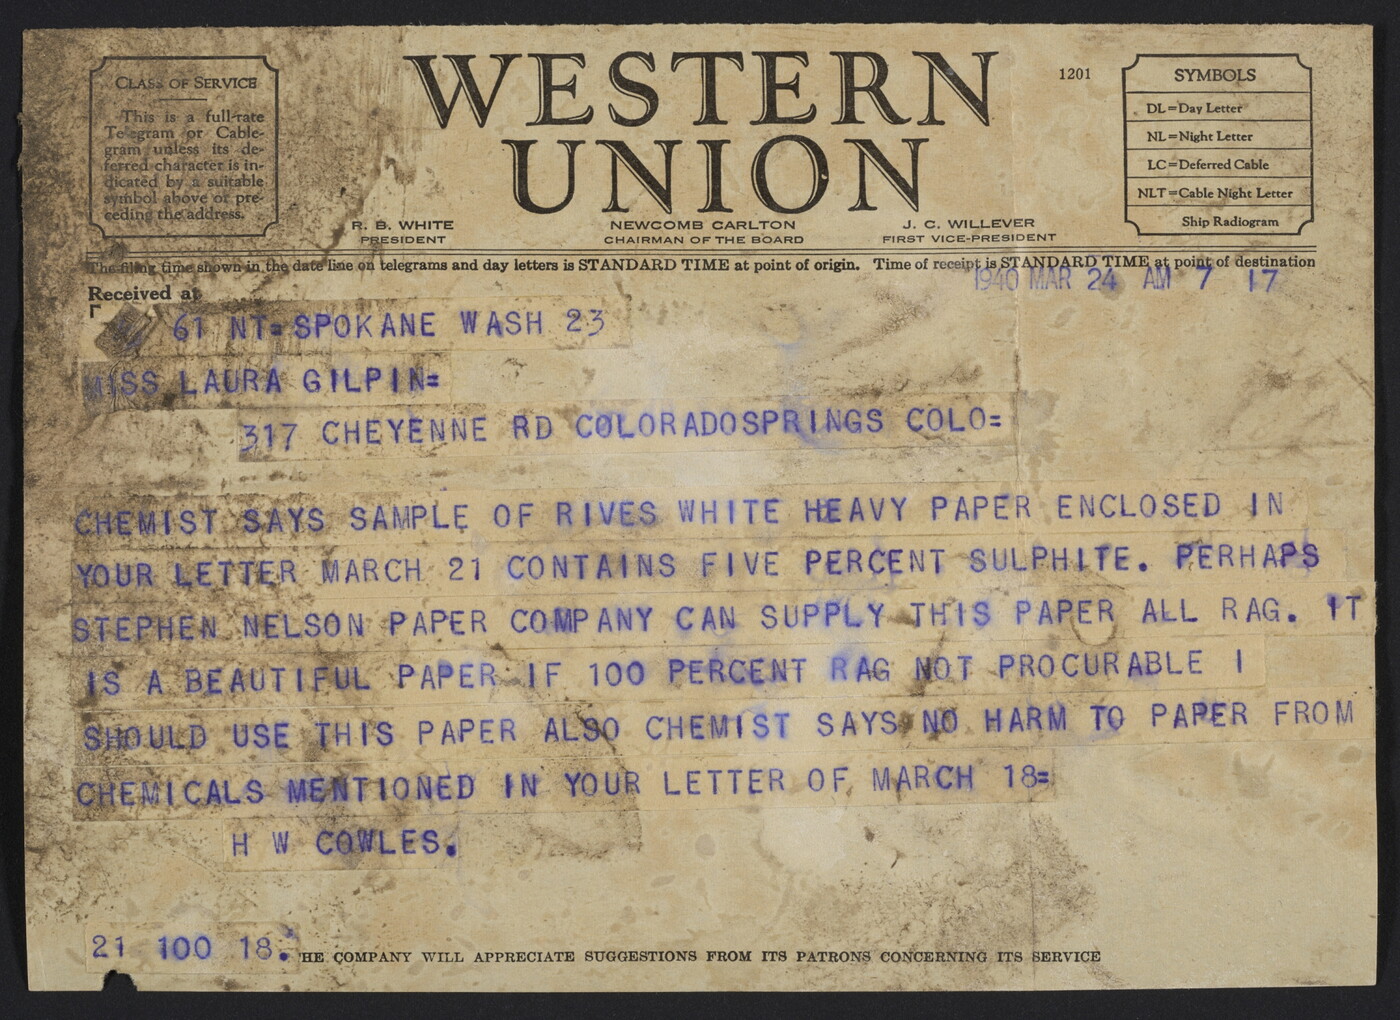 CLASS OF SERVICE
This is a full-rate
Telegram or Cable-
gram unless its de-
ferred character is in-
dicated by a suitable
symbol above or pre-
ceding the address.
WESTERN
UNION
1201
SYMBOLS
DL=Day Letter
NL=Night Letter
LC=Deferred Cable
NLT=Cable Night Letter
Ship Radiogram
R. B. WHITE
PRESIDENT
NEWCOMB CARLTON
CHAIRMAN OF THE BOARD
J. C. WILLEVER
FIRST VICE-PRESIDENT
The filing time shown in the date line on telegrams and day letters is STANDARD TIME at point of origin. Time of receipt is STANDARD TIME at point of destination
Received at
1940 MAR 24 AM 7 17
61 NT=SPOKANE WASH 23
MISS LAURA GILPIN=
317 CHEYENNE RD COLORADOSPRINGS COLO=
CHEMIST SAYS SAMPLE OF RIVES WHITE HEAVY PAPER ENCLOSED IN
YOUR LETTER MARCH 21 CONTAINS FIVE PERCENT SULPHITE. PERHAPS
STEPHEN NELSON PAPER COMPANY CAN SUPPLY THIS PAPER ALL RAG. IT
IS A BEAUTIFUL PAPER IF 100 PERCENT RAG NOT PROCURABLE I
SHOULD USE THIS PAPER ALSO CHEMIST SAYS NO HARM TO PAPER FROM
CHEMICALS MENTIONED IN YOUR LETTER OF MARCH 18=
H W COWLES.
21 100 18.
HE COMPANY WILL APPRECIATE SUGGESTIONS FROM ITS PATRONS CONCERNING ITS SERVICE